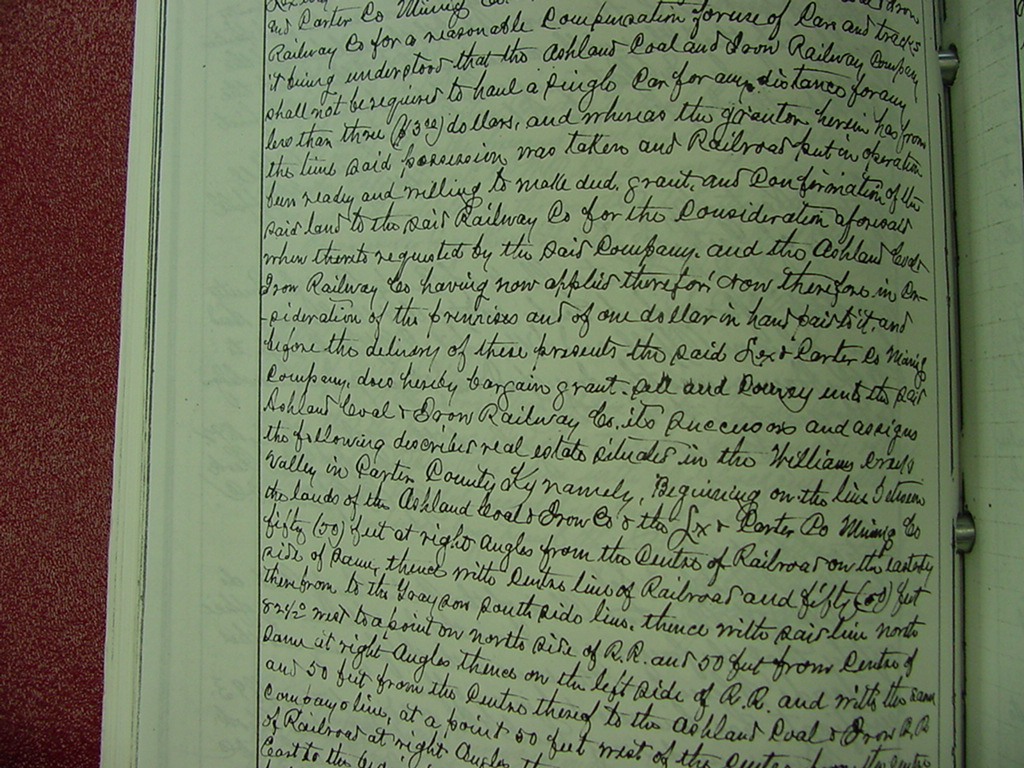 and Carter Co Mining Co
Railway Co for a reasonable compensation for use of Cars and tracks
it being understood that the Ashland Coal and Iron Railway Company
shall not be required to haul a single Car for any distance for any
less than three ($3 00) dollars, and whereas the grantor herein has from
the time said possession was taken and Railroad put in operation
been ready and willing to make deed, grant, and Confirmation of the
said land to the said Railway Co for the Consideration aforesaid
when thereto requested by the said Company. and the Ashland Coal &
Iron Railway Co having now applied therefor: Now therefore in Con-
-sideration of the premises and of one dollar in hand paid to it, and
before the delivery of these presents the said Lex & Carter Co Mining
Company, does hereby bargain grant. sell and Convey unto the said
Ashland Coal & Iron Railway Co. its successors and assigns
the following described real estate situated in the Williams Creek
Valley in Carter County Ky namely, Beginning on the line between
the lands of the Ashland Coal & Iron Co & the Lx & Carter Co Mining Co
fifty (50) feet at right angles from the Centre of Railroad on the easterly
side of same, thence with Centre line of Railroad and fifty (50) feet
therefrom to the Grayson south side line. thence with said line north
82½° west to a point on north side of R.R. and 50 feet from Centre of
same at right Angles thence on the left side of R.R. and with the same
and 50 feet from the Centre thereof to the Ashland Coal & Iron R.R
Companys line, at a point 50 feet west of the Center from the centre
of Railroad at right Angles
East to the